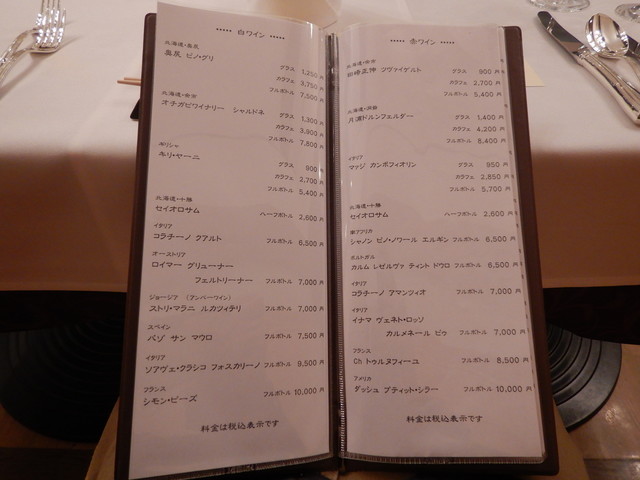 ***** 白ワイン *****
北海道・奥尻
奥尻 ピノ・グリ
グラス 1,250 円
カラフェ 3,750 円
フルボトル 7,500 円
北海道・余市
オチガビワイナリー シャルドネ
グラス 1,300 円
カラフェ 3,900 円
フルボトル 7,800 円
ギリシャ
キリ・ヤーニ
グラス 900 円
カラフェ 2,700 円
フルボトル 5,400 円
北海道・十勝
セイオロサム ハーフボトル 2,600 円
イタリア
コラチーノ クアルト フルボトル 6,500 円
オーストリア
ロイマー グリューナー
フェルトリーナー フルボトル 7,000 円
ジョージア (アンバーワイン)
ストリ・マラニ ルカツィテリ フルボトル 7,000 円
スペイン
パゾ サン マウロ フルボトル 7,500 円
イタリア
ソアヴェ・クラシコ フォスカリーノ フルボトル 9,500 円
フランス
シモン・ビーズ フルボトル 10,000 円
料金は税込表示です
***** 赤ワイン *****
北海道・余市
ツヴァイゲルト
グラス 900 円
カラフェ 2,700 円
フルボトル 5,400 円
北海道・
月浦ドルンフェルダー
グラス 1,400 円
カラフェ 4,200 円
フルボトル 8,400 円
イタリア
マァジ カンポフィオリン
グラス 950 円
カラフェ 2,850 円
フルボトル 5,700 円
北海道・十勝
セイオロサム ハーフボトル 2,600 円
南アフリカ
シャノン ピノ・ノワール エルギン フルボトル 6,500 円
ポルトガル
カルム レゼルヴァ ティント ドウロ フルボトル 6,500 円
イタリア
コラチーノ アマンツィオ フルボトル 7,000 円
イタリア
イナマ ヴェネト・ロッソ
カルメネール ピゥ フルボトル 7,000 円
フランス
Ch トゥルヌフィーユ フルボトル 8,500 円
アメリカ
ダッシュ プティット・シラー フルボトル 10,000 円
料金は税込表示です